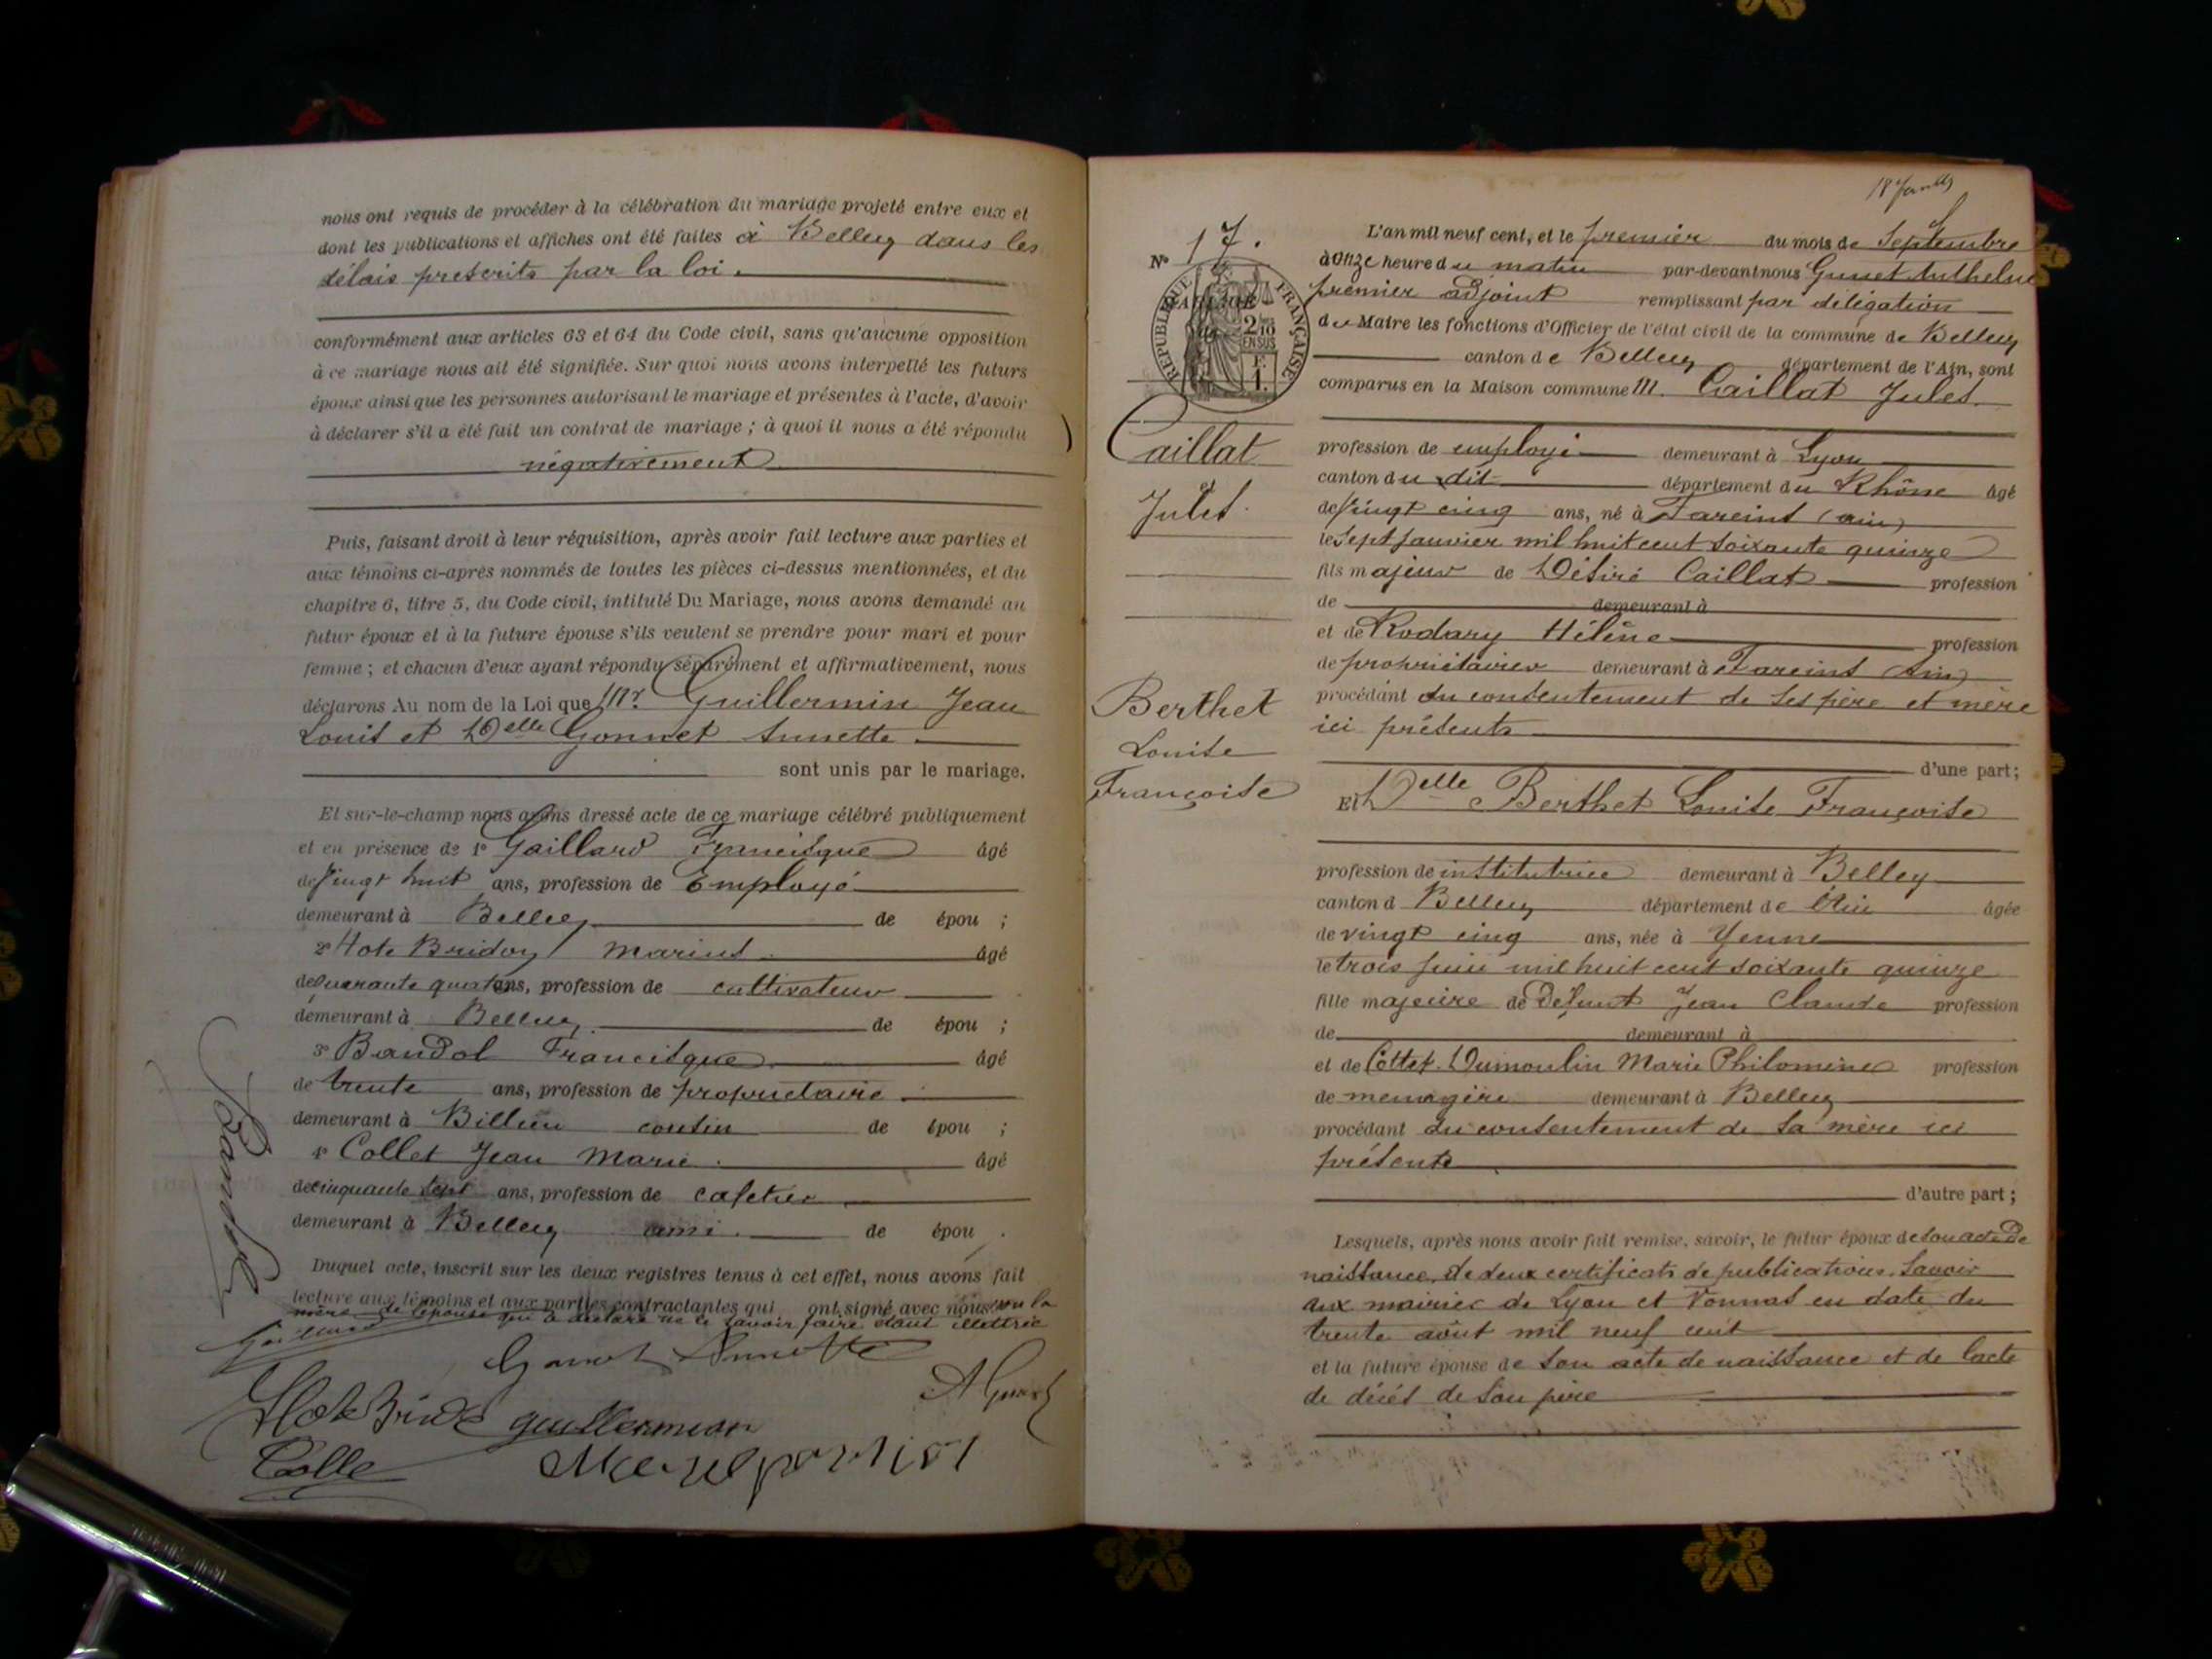 nous ont requis de procéder à la célébration du mariage projeté entre eux et
dont les publications et affiches ont été faites à Belley dans les
délais prescrits par la loi.
conformément aux articles 63 et 64 du Code civil, sans qu'aucune opposition
à ce mariage nous ait été signifiée. Sur quoi nous avons interpellé les futurs
époux ainsi que les personnes autorisant le mariage et présentes à l'acte, d'avoir
à déclarer s'il a été fait un contrat de mariage ; à quoi il nous a été répondu
négativement
Puis, faisant droit à leur réquisition, après avoir fait lecture aux parties et
aux témoins ci-après nommés de toutes les pièces ci-dessus mentionnées, et du
chapitre 6, titre 5, du Code civil, intitulé Du Mariage, nous avons demandé au
futur époux et à la future épouse s'ils veulent se prendre pour mari et pour
femme ; et chacun d'eux ayant répondu séparément et affirmativement, nous
déclarons Au nom de la Loi que Mr. Guillermin Jean
Louis et Delle Gonnet Annette
sont unis par le mariage.
Et sur-le-champ nous avons dressé acte de ce mariage célébré publiquement
et en présence de 1° Gaillard Francisque âgé
de vingt huit ans, profession de Employé
demeurant à Belley de épou ;
2° Hote Bridon Marius âgé
de quarante quatre ans, profession de cultivateur
demeurant à Belley de épou ;
3° Baudol Francisque âgé
de trente ans, profession de propriétaire
demeurant à Billieu cousin de épou ;
4° Collet Jean Marie âgé
de cinquante sept ans, profession de cafetier
demeurant à Belley ami de épou .
Duquel acte, inscrit sur les deux registres tenus à cet effet, nous avons fait
lecture aux témoins et aux parties contractantes qui ont signé avec nous
mère de l'épouse qui a déclaré ne le savoir faire étant illettrée
Gonnet Annette
Hote Bridon guillermin
Colle
18e feuille
N° 17.
RÉPUBLIQUE FRANÇAISE
2/10
EN SUS
Caillat
et
Jules
Berthet
Louise
Françoise
L'an mil neuf cent, et le premier du mois de Septembre
à onze heure du matin par-devant nous Gunet Anthelme
premier adjoint remplissant par délégation
du Maire les fonctions d'Officier de l'état civil de la commune de Belley
canton de Belley département de l'Ain, sont
comparus en la Maison commune M. Caillat Jules
profession de employé demeurant à Lyon
canton du dit département du Rhône âgé
de vingt cinq ans, né à Fareins (ain)
le sept janvier mil huit cent soixante quinze
fils majeur de Désiré Caillat profession
de demeurant à
et de Rodary Hélène profession
de propriétaires demeurant à Fareins Ain
procédant du consentement de ses père et mère
ici présents
d'une part ;
Et Delle Berthet Louise Françoise
profession de institutrice demeurant à Belley
canton d Belley département de l'Ain âgée
de vingt cinq ans, née à Yenne
le trois juin mil huit cent soixante quinze
fille majeure de Défunt Jean Claude profession
de demeurant à
et de Cottet Dumoulin Marie Philomène profession
de menagère demeurant à Belley
procédant du consentement de sa mère ici
présente
d'autre part ;
Lesquels, après nous avoir fait remise, savoir, le futur époux de son acte de
naissance, de deux certificats de publications, savoir
aux mairies de Lyon et Vonnas en date du
trente août mil neuf cent
et la future épouse de son acte de naissance et de l'acte
de décès de son père